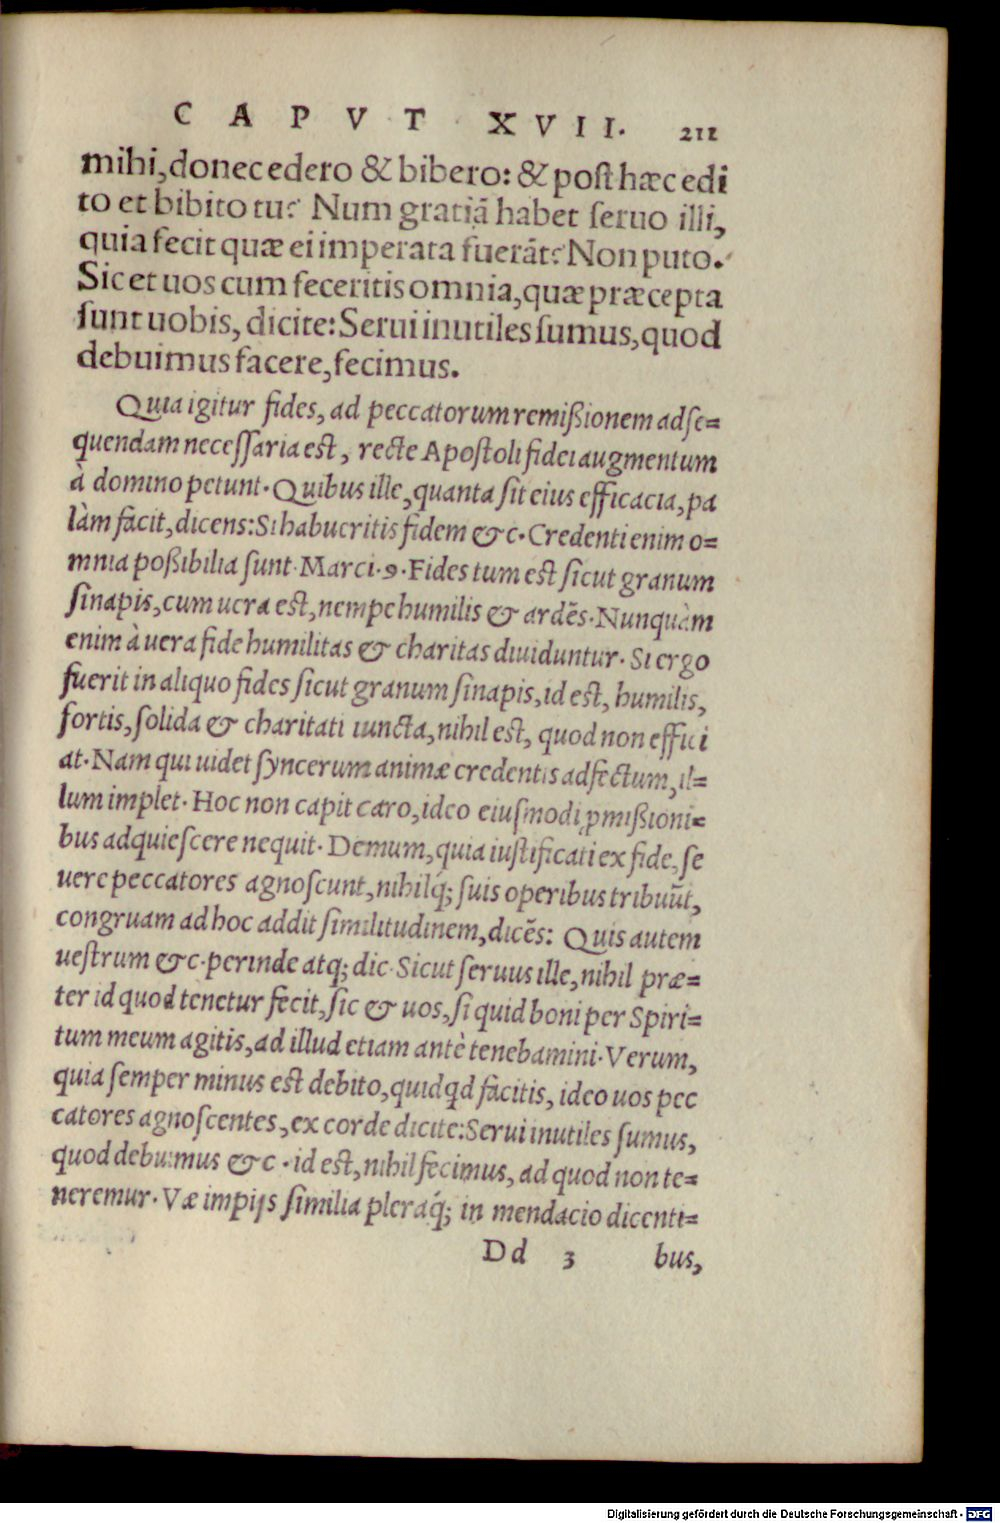 CAPVT XVII. 211
mihi, donec edero & bibero: & post hæc edi
to et bibito tu? Num gratiã habet seruo illi,
quia fecit quæ ei imperata fuerãt? Non puto.
Sic et uos cum feceritis omnia, quæ præcepta
sunt uobis, dicite: Serui inutiles sumus, quod
debuimus facere, fecimus.
Quia igitur fides, ad peccatorum remißionem adse=
quendam necessaria est, recte Apostoli fidei augmentum
à domino petunt. Quibus ille, quanta sit eius efficacia, pa
làm facit, dicens: Si habueritis fidem &c. Credenti enim o=
mnia poßibilia sunt. Marci. 9. Fides tum est sicut granum
sinapis, cum uera est, nempe humilis & ardẽs. Nunquàm
enim à uera fide humilitas & charitas diuiduntur. Si ergo
fuerit in aliquo fides sicut granum sinapis, id est, humilis,
fortis, solida & charitati iuncta, nihil est, quod non effici
at. Nam qui uidet syncerum animæ credentis adfectum, il=
lum implet. Hoc non capit caro, ideo eiusmodi ꝓmißioni=
bus adquiescere nequit. Demum, quia iustificati ex fide, se
uere peccatores agnoscunt, nihilq́; suis operibus tribuũt,
congruam ad hoc addit similitudinem, dicẽs: Quis autem
uestrum &c. perinde atq; dic. Sicut seruus ille, nihil præ=
ter id quod tenetur fecit, sic & uos, si quid boni per Spiri=
tum meum agitis, ad illud etiam antè tenebamini. Verum,
quia semper minus est debito, quidqd facitis, ideo uos pec
catores agnoscentes, ex corde dicite: Serui inutiles sumus,
quod debuimus &c. id est, nihil fecimus, ad quod non te=
neremur. Væ impijs similia pleraq́; in mendacio dicenti=
Dd 3 bus,
Digitalisierung gefördert durch die Deutsche Forschungsgemeinschaft - DFG